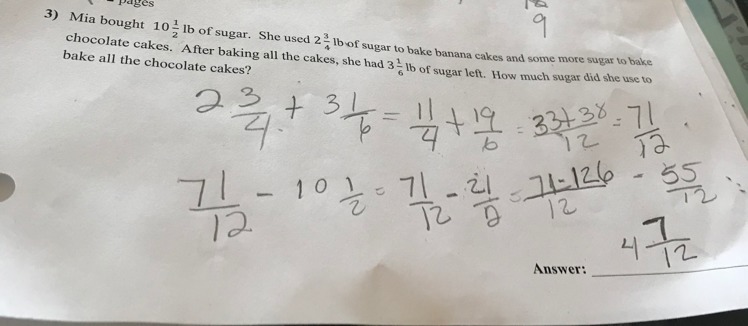 pages
9
3) Mia bought 10 1/2 lb of sugar. She used 2 3/4 lb of sugar to bake banana cakes and some more sugar to bake
chocolate cakes. After baking all the cakes, she had 3 1/6 lb of sugar left. How much sugar did she use to
bake all the chocolate cakes?
2 3/4 + 3 1/6 = 11/4 + 19/6 = 33+38/12 = 71/12
71/12 - 10 1/2 = 71/12 - 21/2 = 71-126/12 - 55/12
4 7/12
Answer: